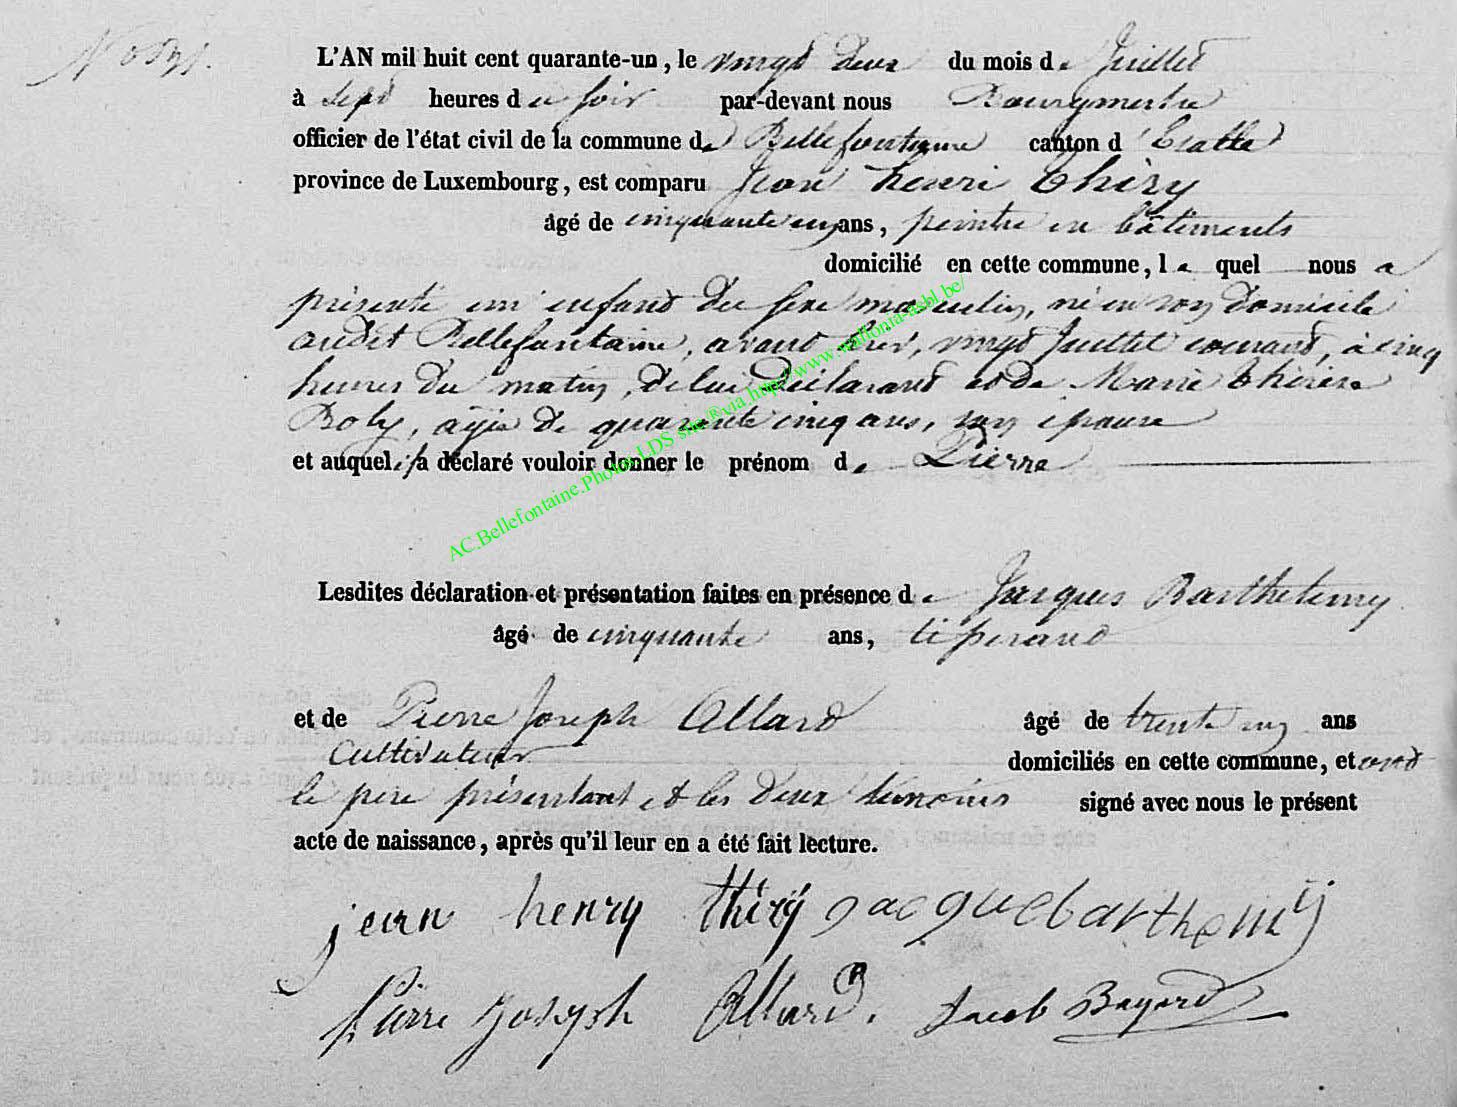 L'AN mil huit cent quarante-un, le vingt deux du mois de Juillet
à sept heures du soir par-devant nous Bourgmestre
officier de l'état civil de la commune de Bellefontaine canton d'Etalle
province de Luxembourg, est comparu Jean henri thiry
âgé de cinquante ans, peintre en bâtiments
domicilié en cette commune, lequel nous a
présenté un enfant du sexe masculin, né en son domicile
audit Bellefontaine, avant hier, vingt Juillet courant, à cinq
heures du matin, de lui déclarant et de Marie thérèse
Boly, agée de quarante cinq ans, son épouse
et auquel il a déclaré vouloir donner le prénom de Pierre
AC.Bellefontaine.Photos LDS site ®via.http://www.wallonia-asbl.be/
Lesdites déclaration et présentation faites en présence de Jacques Barthelemy
âgé de cinquante ans, tisserand
et de Pierre Joseph Allard âgé de trente ans
Cultivateur domiciliés en cette commune, et ont
le père présentant et les deux témoins signé avec nous le présent
acte de naissance, après qu'il leur en a été fait lecture.
jean henry thiry Jacque barthemy
Pierre Joseph Allard. Jacob Bayard